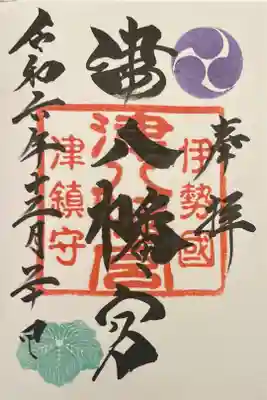 奉拝
伊勢國
津八幡宮
津八幡宮
津鎮守
令和六年十二月